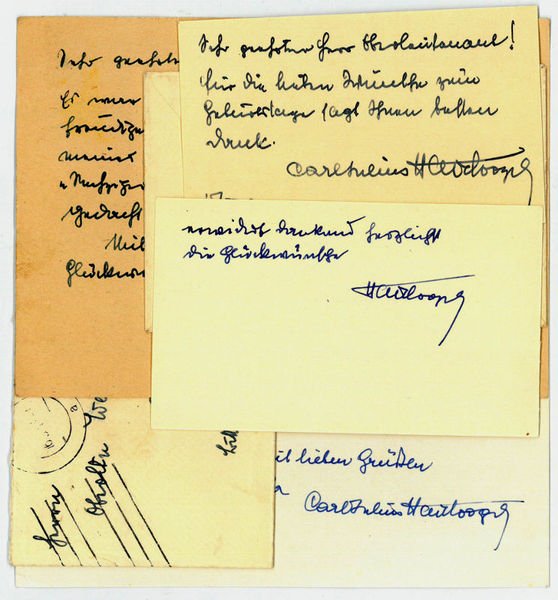 Sehr geehrter Herr Oberleutenant!
für die lieben Wünsche zum
Geburtstage sagt Ihnen besten
Dank.
Carl Julius Haidvogel
Sehr geehrte
Es war
freudige
meines
gedacht
Mit
Glückw
erwidert dankend herzlichst
die Glückwünsche
Haidvogel
Herrn
Oberltn We
mit lieben Grüßen
Carl Julius Haidvogel